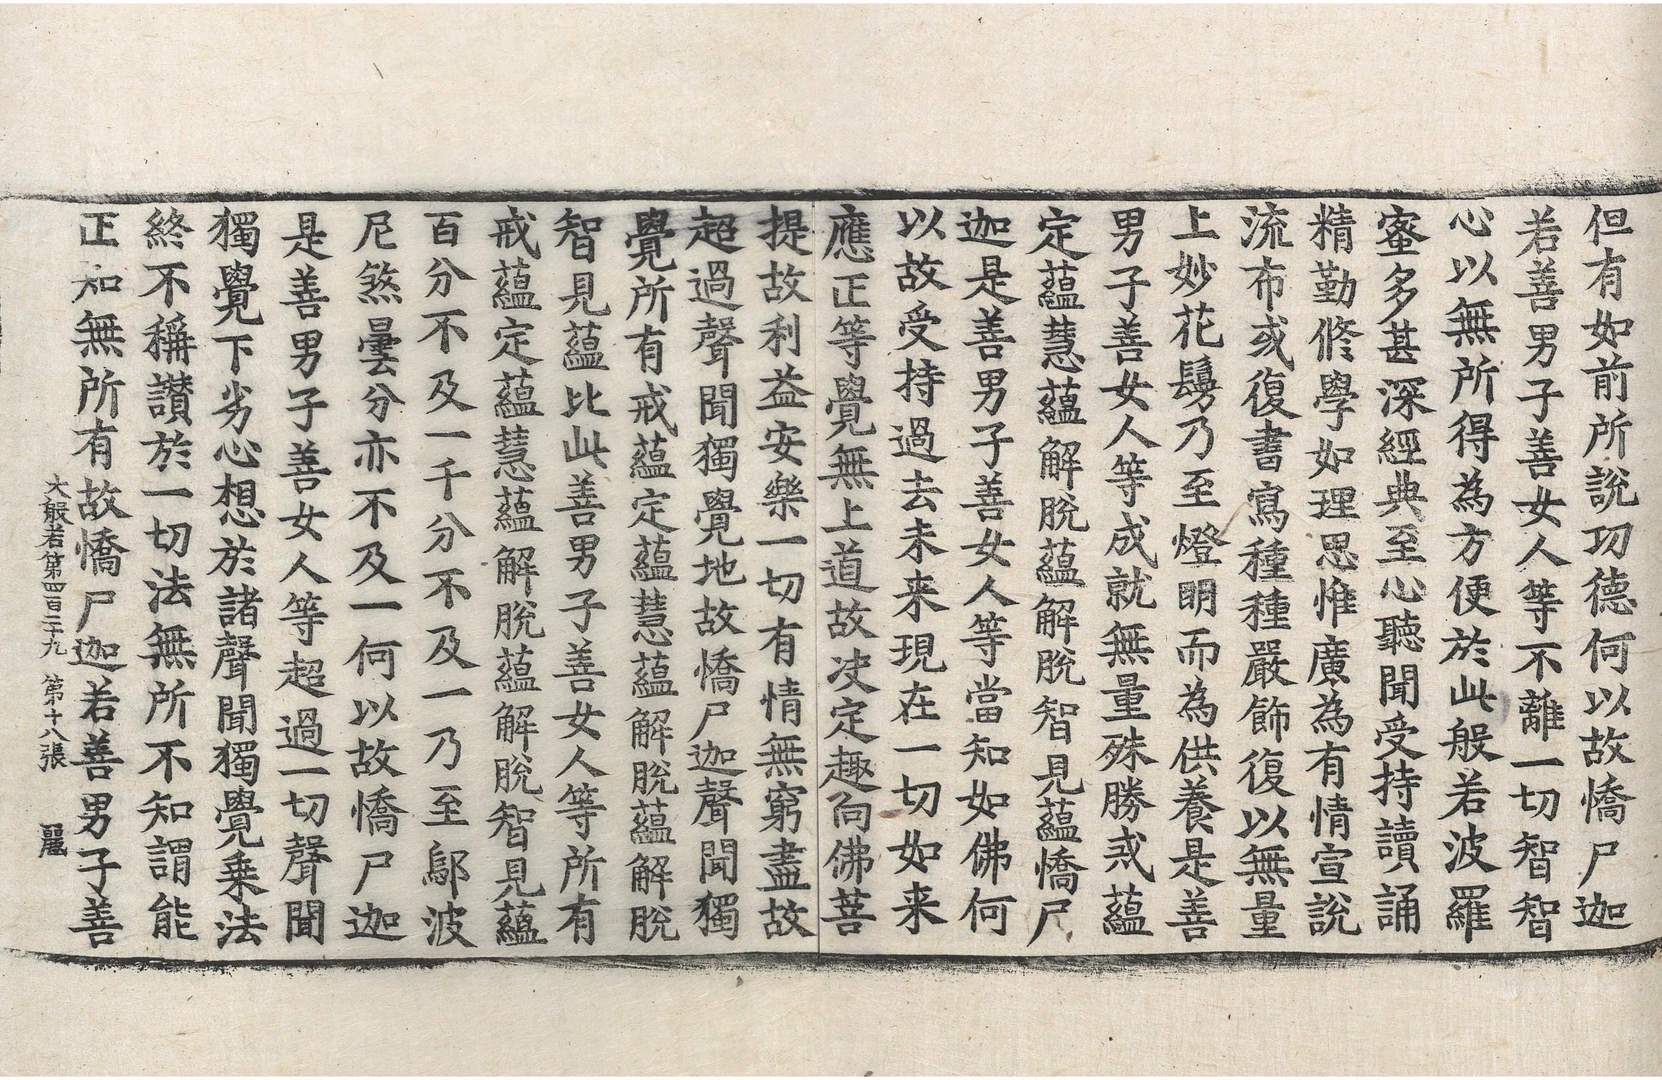 但有如前所說功德何以故憍尸迦
若善男子善女人等不離一切智智
心以無所得為方便於此般若波羅
蜜多甚深經典至心聽聞受持讀誦
精勤修學如理思惟廣為有情宣說
流布或復書寫種種嚴飾復以無量
上妙花鬘乃至燈明而為供養是善
男子善女人等成就無量殊勝戒蘊
定蘊慧蘊解脫蘊解脫智見蘊憍尸
迦是善男子善女人等當知如佛何
以故受持過去未来現在一切如来
應正等覺無上道故决定趣向佛菩
提故利益安樂一切有情無窮盡故
超過聲聞獨覺地故憍尸迦聲聞獨
覺所有戒蘊定蘊慧蘊解脫蘊解脫
智見蘊比此善男子善女人等所有
戒蘊定蘊慧蘊解脫蘊解脫智見蘊
百分不及一千分不及一乃至鄔波
尼煞曇分亦不及一何以故憍尸迦
是善男子善女人等超過一切聲聞
獨覺下劣心想於諸聲聞獨覺乗法
終不稱讃於一切法無所不知謂能
正知無所有故憍尸迦若善男子善
大般若第四百二十九 第十八張 麗